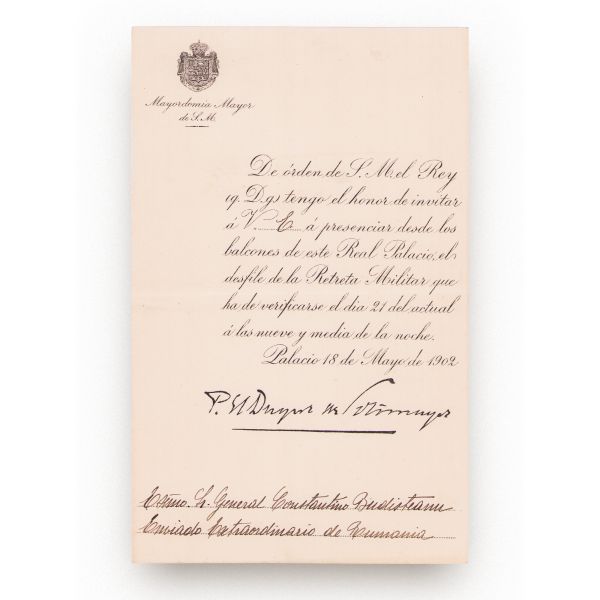 Mayordomia Mayor
de S. M.
De órden de S. M. el Rey
(q. D. g.) tengo el honor de invitar
á V. E. á presenciar desde los
balcones de este Real Palacio, el
desfile de la Retreta Militar que
ha de verificarse el dia 21 del actual
á las nueve y media de la noche.
Palacio 18 de Mayo de 1902
P. El Duque de Sotomayor
Excmo. Sr. General Constantino Budisteanu
Enviado Extraordinario de Rumania